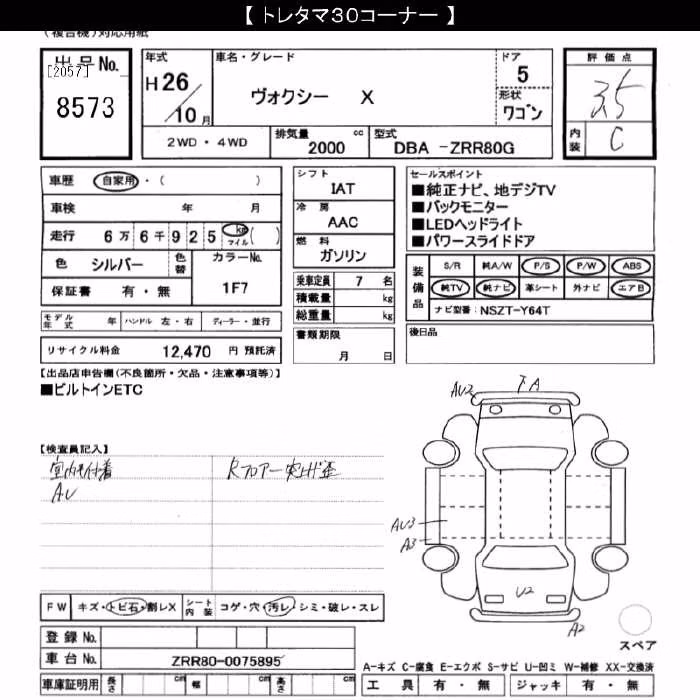 【 トレタマ３０コーナー 】
(複合機)対応用紙
出品No.
[2057]
8573
年式
H 26 / 10 月
車名・グレード
ヴォクシー X
ドア
5
形状
ワゴン
評価点
3.5
内装
C
2WD ・ 4WD
排気量 cc
2000
型式
DBA -ZRR80G
車歴 自家用 ・( )
車検 年 月
走行 6万6千925 km マイル ( )
色 シルバー 色替 カラーNo.
1F7
保証書 有 ・ 無
モデル年式 年 ハンドル 左 ・ 右 ディーラー ・ 並行
リサイクル料金 12,470 円 預託済
シフト
IAT
冷房
AAC
燃料
ガソリン
乗車定員 7 名
積載量 kg
総重量 kg
書類期限
月 日
セールスポイント
■純正ナビ、地デジTV
■バックモニター
■LEDヘッドライト
■パワースライドドア
装備品
S/R 純A/W P/S P/W ABS
純TV 純ナビ 革シート 外ナビ エアB
ナビ型番: NSZT-Y64T
後日品
【出品店申告欄(不良箇所・欠品・注意事項等)】
■ビルトインETC
【検査員記入】
室内毛付着
AU
Rフロアー突上げ歪
AU2
A
AU3
A3
U2
A2
スペア
FW キズ・トビ石・割レX シート内装 コゲ・穴・汚レ・シミ・破レ・スレ
登録No.
車台No. ZRR80-0075895
車庫証明用 長さ cm 幅 cm 高さ cm
A-キズ C-腐食 E-エクボ S-サビ U-凹ミ W-補修 XX-交換済
工具 有 ・ 無 ジャッキ 有 ・ 無